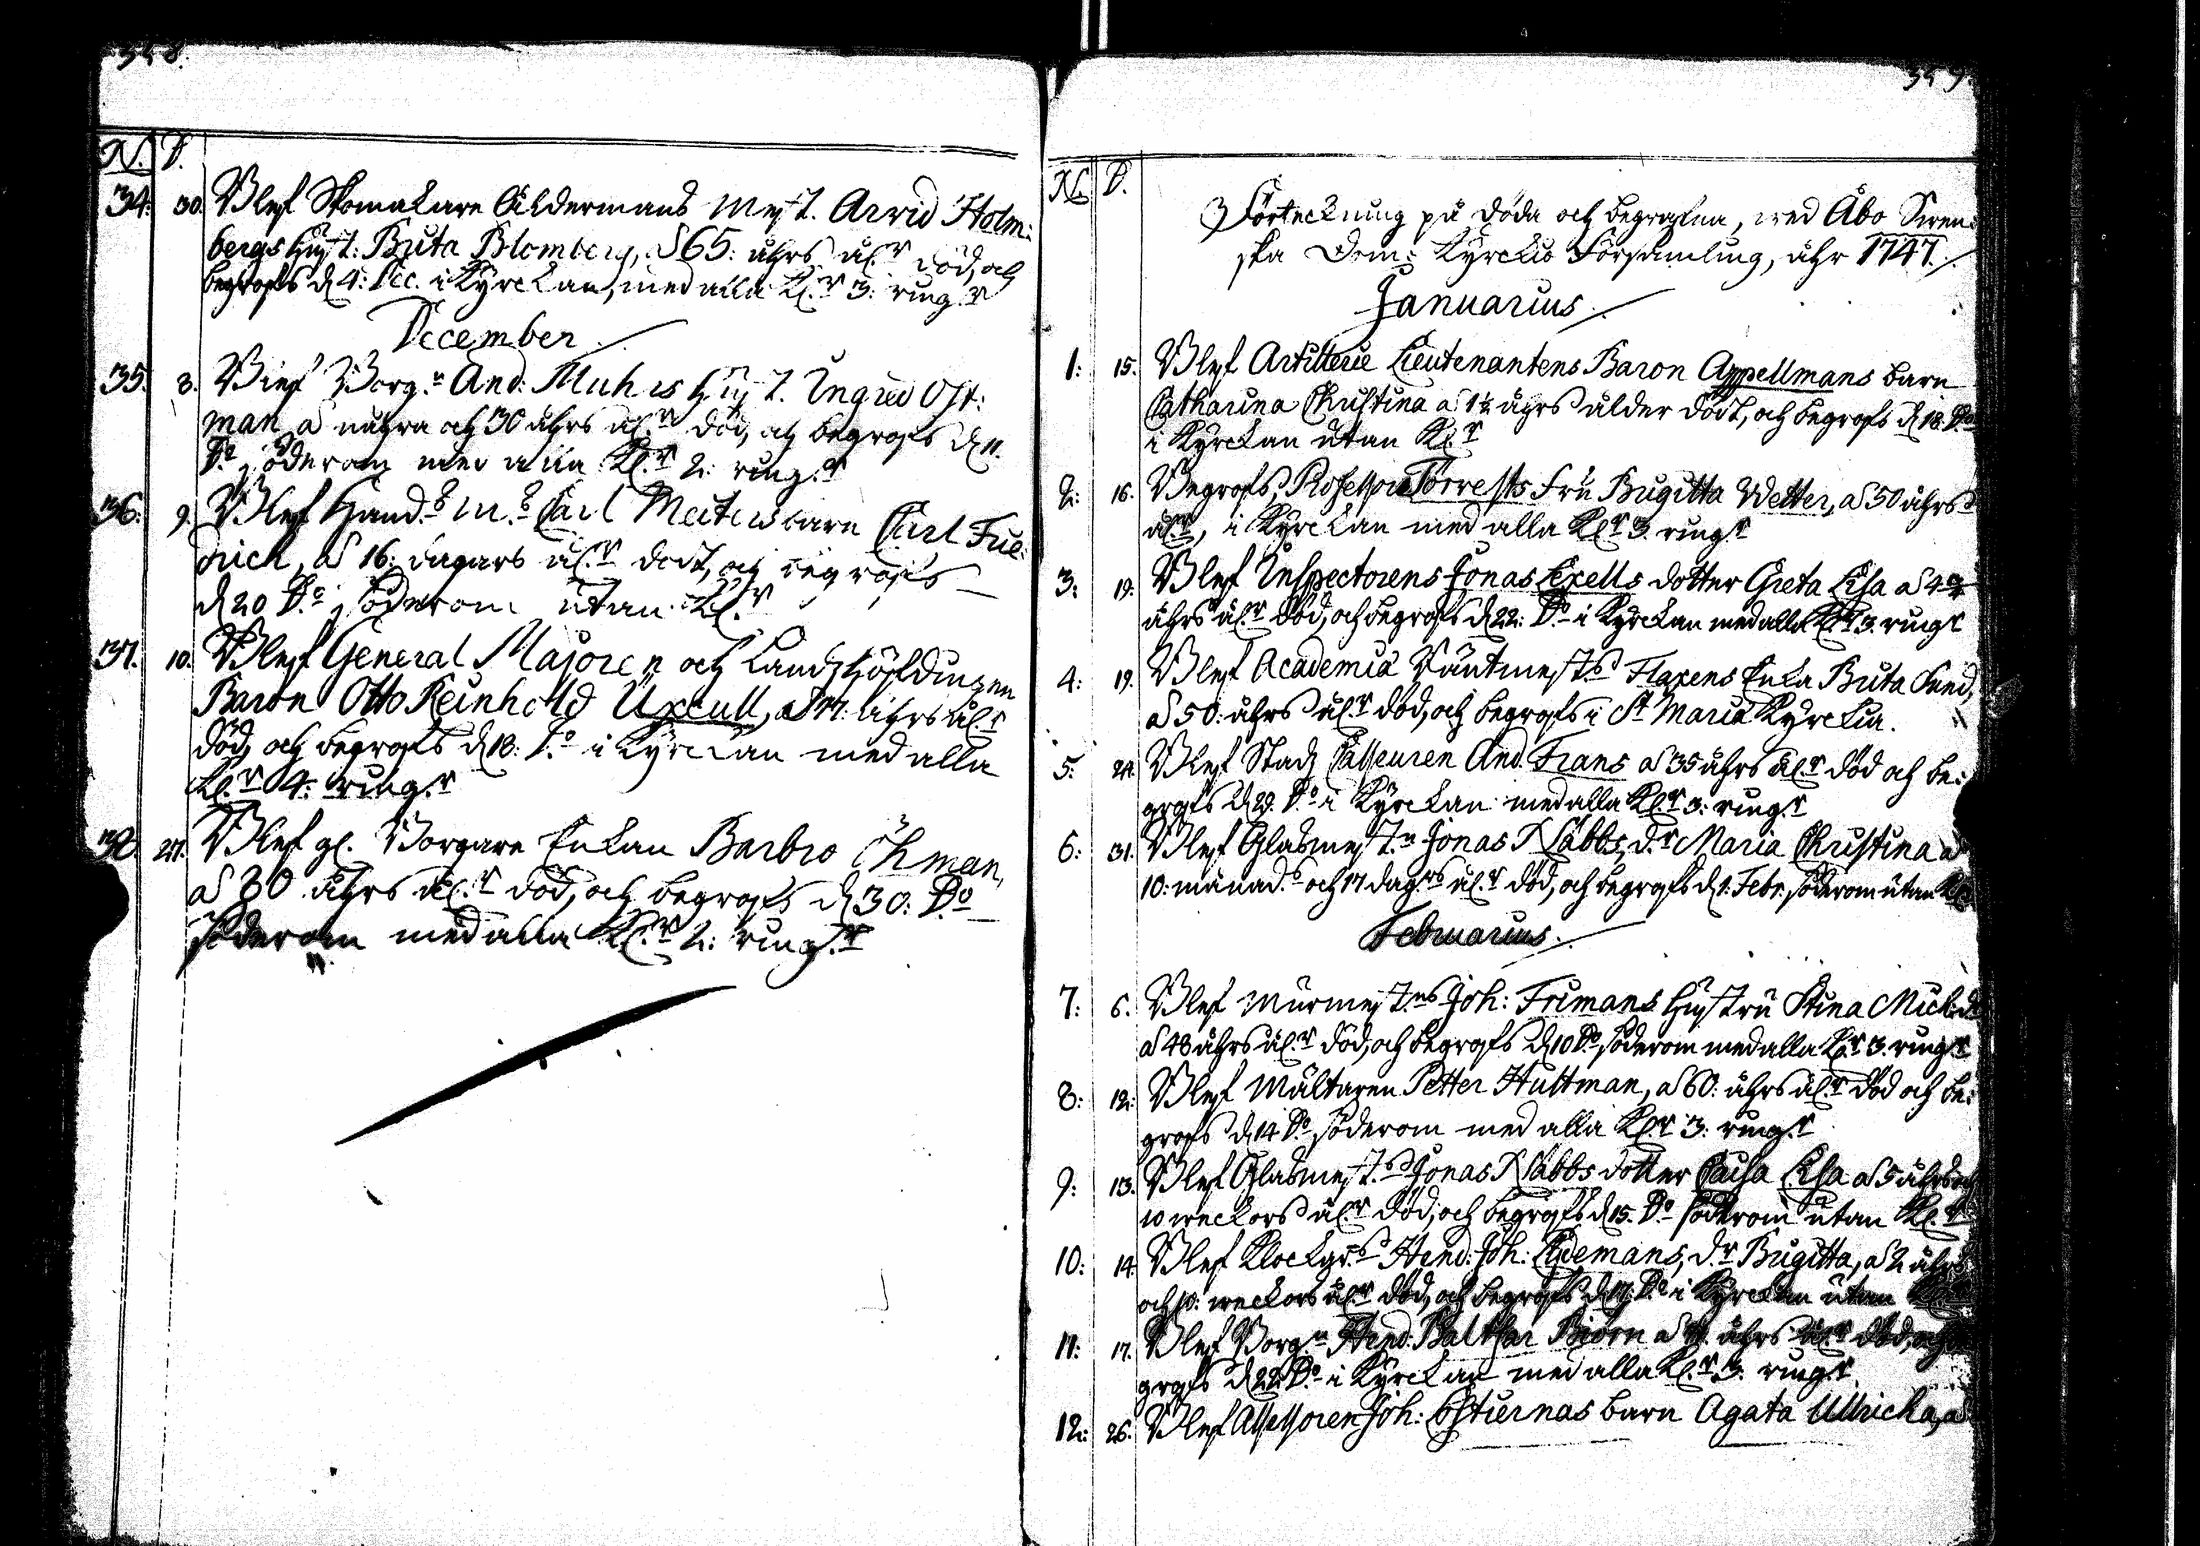 358.
N. D.
34. 30. Blef Skomakare Åldermans Mest. Arvid Holm:
bergs Hust: Brita Blomberg, a 65: åhrs ål.r död, och
begrofs d 4: Dec. i Kyrckan, med alla Kl.r 3: ring.r
December
35. 8. Blef Borg.n And: Muhrs Hust. Ingred Ost:
man a några och 30 åhrs ål.r död, och begrofs d 11.
D.o söderom med alla Kl.r 2: ring.r
36. 9. Blef Hand.s m.s Carl Meiters barn Carl Frie:
drich, a 16: dagars ål.r dödt, och begrofs
d 20 D.o söderom utan Kl.r
37. 10. Blef General Majoren och Landshöfdingen
Baron Otto Reinhold Üxcull, a åhrs ål.r
död, och begrofs d 18: D.o i Kyrckan med alla
Kl.r 4: ring.r
38. 27. Blef gl. Borgare Enkan Barbro Öhman,
a 80 åhrs ål.r död, och begrofs d 30: D.o
söderom med alla Kl.r 2: ring.r
359.
N. D.
Förteckning på döda och begrafna, wed Åbo Swen:
ska Dom: Kyrckio Församling, åhr 1747.
Januarius
1: 15. Blef Artillerie Lieutenantens Baron Appellmans barn
Catharina Christina a 1½ åhrs ålder dödt, och begrofs d 18 D.o
i Kyrckan utan Kl.r
2: 16. Begrofs, Professor Torrests Fru Brigitta Wetter, a 50 åhrs
ål.r, i Kyrckan med alla Kl.r 3. ring.r
3: 19. Blef Inspectorens Jonas Lexells dotter Greta Lisa a
åhrs ål.r död, och begrofs d 22: D.o i Kyrckan med alla Kl.r 3. ring.r
4: 19. Blef Academiæ Wäutmest.s Flaxens Enka Brita
a 50: åhrs ål.r död, och begrofs i St Mariæ Kyrckia.
5: 24. Blef Stads Casseuren And. Frans a 35 åhrs ål.r död och be:
grofs d 29. D.o i Kyrckan med alla Kl.r 3: ring.r
6: 31. Blef Glasmest.n Jonas Nabbs, d.r Maria Christina a
10: månad.s och 17 dag.rs ål.r död, och begrofs d 1. Febr. söderom utan Kl.r
Februarius.
7: 6. Blef Mürmest.ns Joh: Frimans Hustru Stina Mich:d.
a 48 åhrs ål.r död, och begrofs d 10 D.o, söderom med alla Kl.r 3. ring.r
8: 12: Blef Mältaren Petter Hultman, a 60: åhrs ål.r död och be:
grofs d 14 D.o, söderom med alla Kl.r 3: ring.r
9: 13. Blef Glasmest.s Jonas Nabbs dotter Caisa Lisa a 5 åhrs och
10 weckors ål.r död, och begrofs d 15. D.o söderom utan Kl.r
10: 14. Blef Klockar.s Hend: Joh: Lydemans, d.r Brigitta, a 2 åhrs
och 10: weckors ål.r död, och begrofs d 17. D.o i Kyrckan utan
11: 17. Blef Borg.n Hend: Balthar Biörn a åhrs ål.r död, och be
grofs d 22: D.o i Kyrckan med alla Kl.r 3. ring.r
12: 26. Blef Assessoren Joh: Costiernas barn Agata Ulricha, a